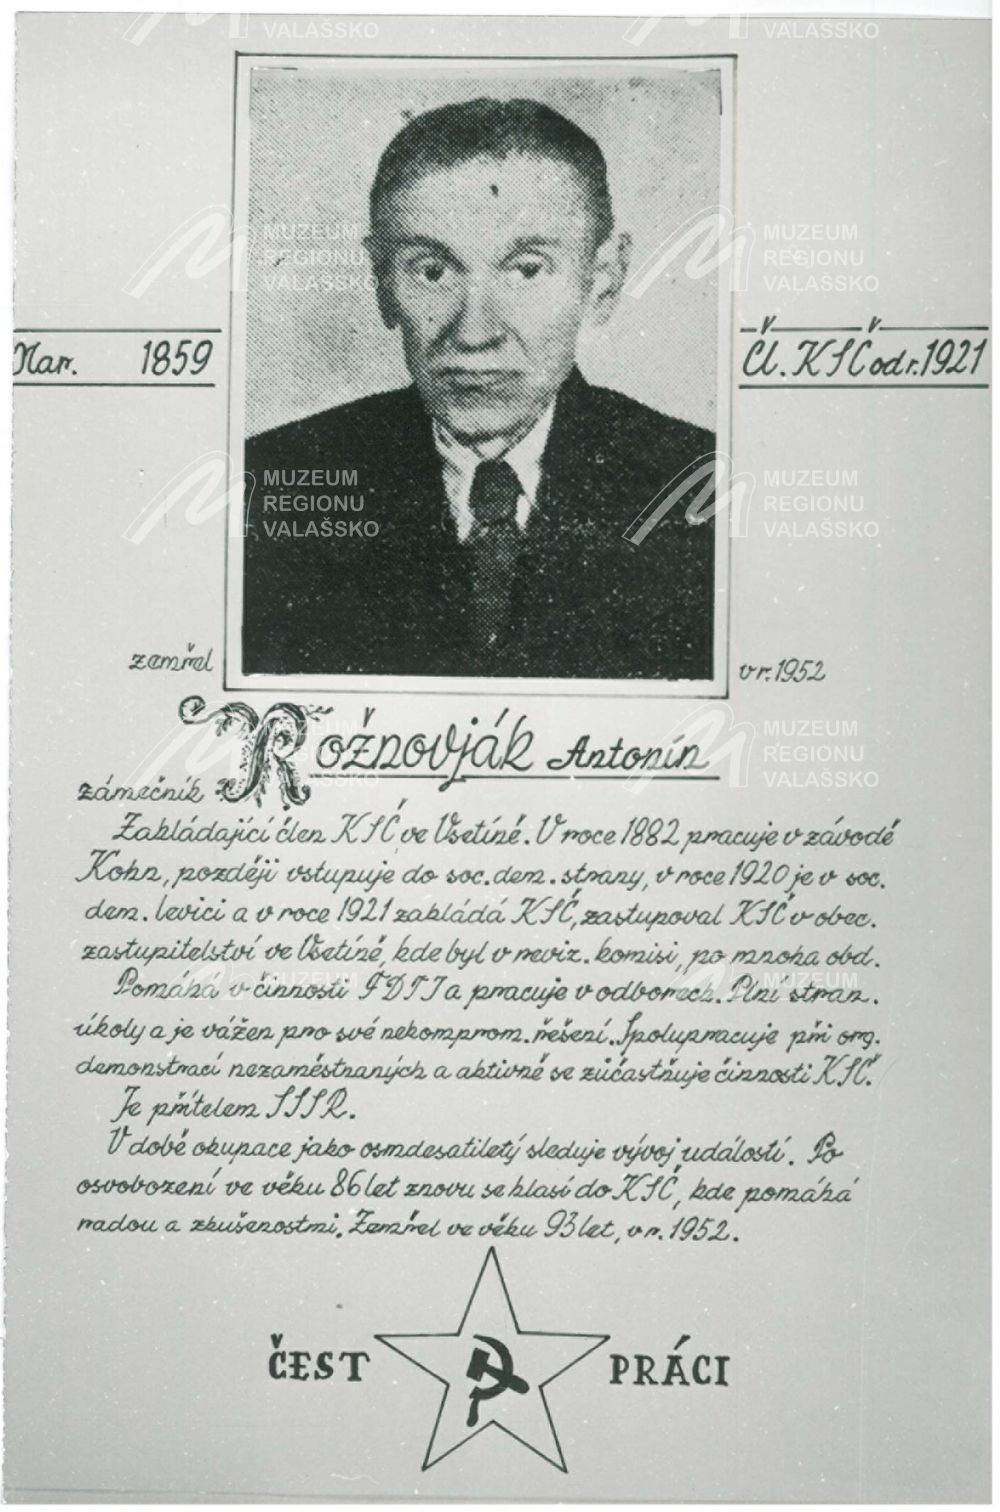 VALAŠSKO
VALAŠSKO
MUZEUM
REGIONU
VALAŠSKO
MUZEUM
REGIONU
VALAŠSKO
Nar. 1859
Čl. KSČ od r. 1921
MUZEUM
REGIONU
VALAŠSKO
MUZEUM
REGIONU
VALAŠSKO
zemřel
v r. 1952
MUZEUM
REGIONU
VALAŠSKO
MUZEUM
REGIONU
VALAŠSKO
Rožnovják Antonín
zámečník
Zakládající člen KSČ ve Vsetíně. V roce 1882 pracuje v závodě
Kohn, později vstupuje do soc. dem. strany, v roce 1920 je v soc.
dem. levici a v roce 1921 zakládá KSČ, zastupoval KSČ v obec.
zastupitelství ve Vsetíně, kde byl v reviz. komisi, po mnoha obd.
Pomáhá v činnosti FDTJ a pracuje v odborech. Plní stran.
úkoly a je vážen pro své nekomprom. řešení. Spolupracuje při org.
demonstrací nezaměstnaných a aktivně se zúčastňuje činnosti KSČ.
Je přítelem SSSR.
V době okupace jako osmdesátiletý sleduje vývoj událostí. Po
osvobození ve věku 86 let znovu se hlásí do KSČ, kde pomáhá
radou a zkušenostmi. Zemřel ve věku 93 let, v r. 1952.
ČEST PRÁCI